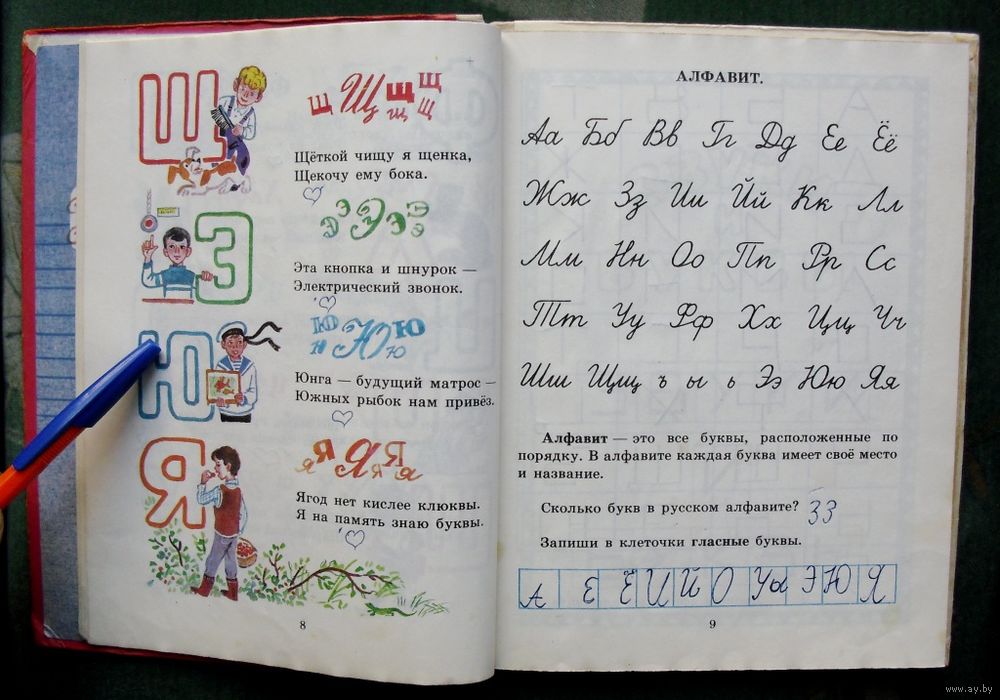 Щ
Щ Щ Щ Щ
щ Щ
Щёткой чищу я щенка,
Щекочу ему бока.
Э
Э Э Э Э
Э э Э
Эта кнопка и шнурок —
Электрический звонок.
Ю
Ю Ю Ю
ю ю
Юнга — будущий матрос —
Южных рыбок нам привёз.
Я
я Я Я Я
я я
Ягод нет кислее клюквы.
Я на память знаю буквы.
8
АЛФАВИТ.
Аа Бб Вв Гг Дд Ее Ёё
Жж Зз Ии Йй Кк Лл
Мм Нн Оо Пп Рр Сс
Тт Уу Фф Хх Цц Чч
Шш Щщ ъ ы ь Ээ Юю Яя
Алфавит — это все буквы, расположенные по
порядку. В алфавите каждая буква имеет своё место
и название.
Сколько букв в русском алфавите? 33
Запиши в клеточки гласные буквы.
А Е Ё И Й О У ы Э Ю Я
9
www.ay.by